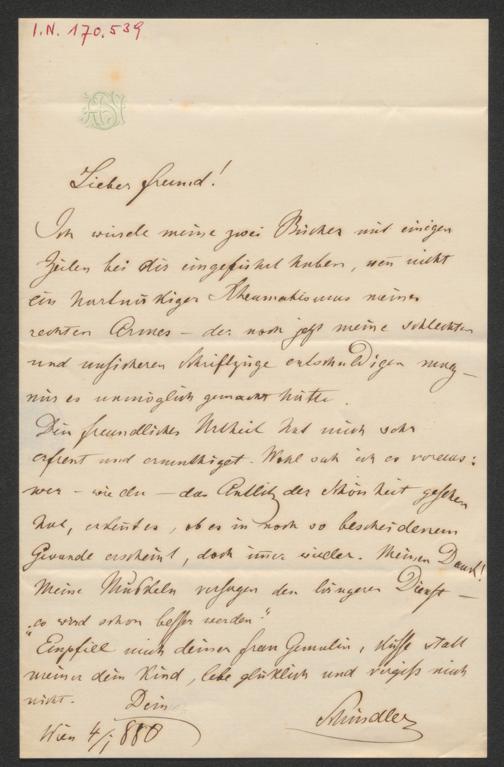 I.N. 170.539
Lieber Freund!
Ich würde meine zwei Bücher mit einigen
Zeilen bei dir eingeführt haben, wen nicht
ein hartnäkiger Rheumatismus meines
rechten Armes – der noch jetzt meine schlechten
und unsicheren Schriftzüge entschuldigen mag –
mir es unmöglich gemacht hätte.
Dein freundliches Urtheil hat mich sehr
erfreut und ermuthiget. Wohl sah ich es voraus:
wer – wie du – das Antlitz der Schönheit gesehen
hat, erkent es, ob es in noch so bescheidenem
Gewande erscheint, doch imer wieder. Meinen Dank!
Meine Muskeln versagen den längeren Dienst –
"es wird schon besser werden."
Empfiel mich deiner Frau Gemalin, küsse statt
meiner dein Kind, lebe glüklich und vergiß mich
nicht. Dein
Wien 4/1 880 Schindler